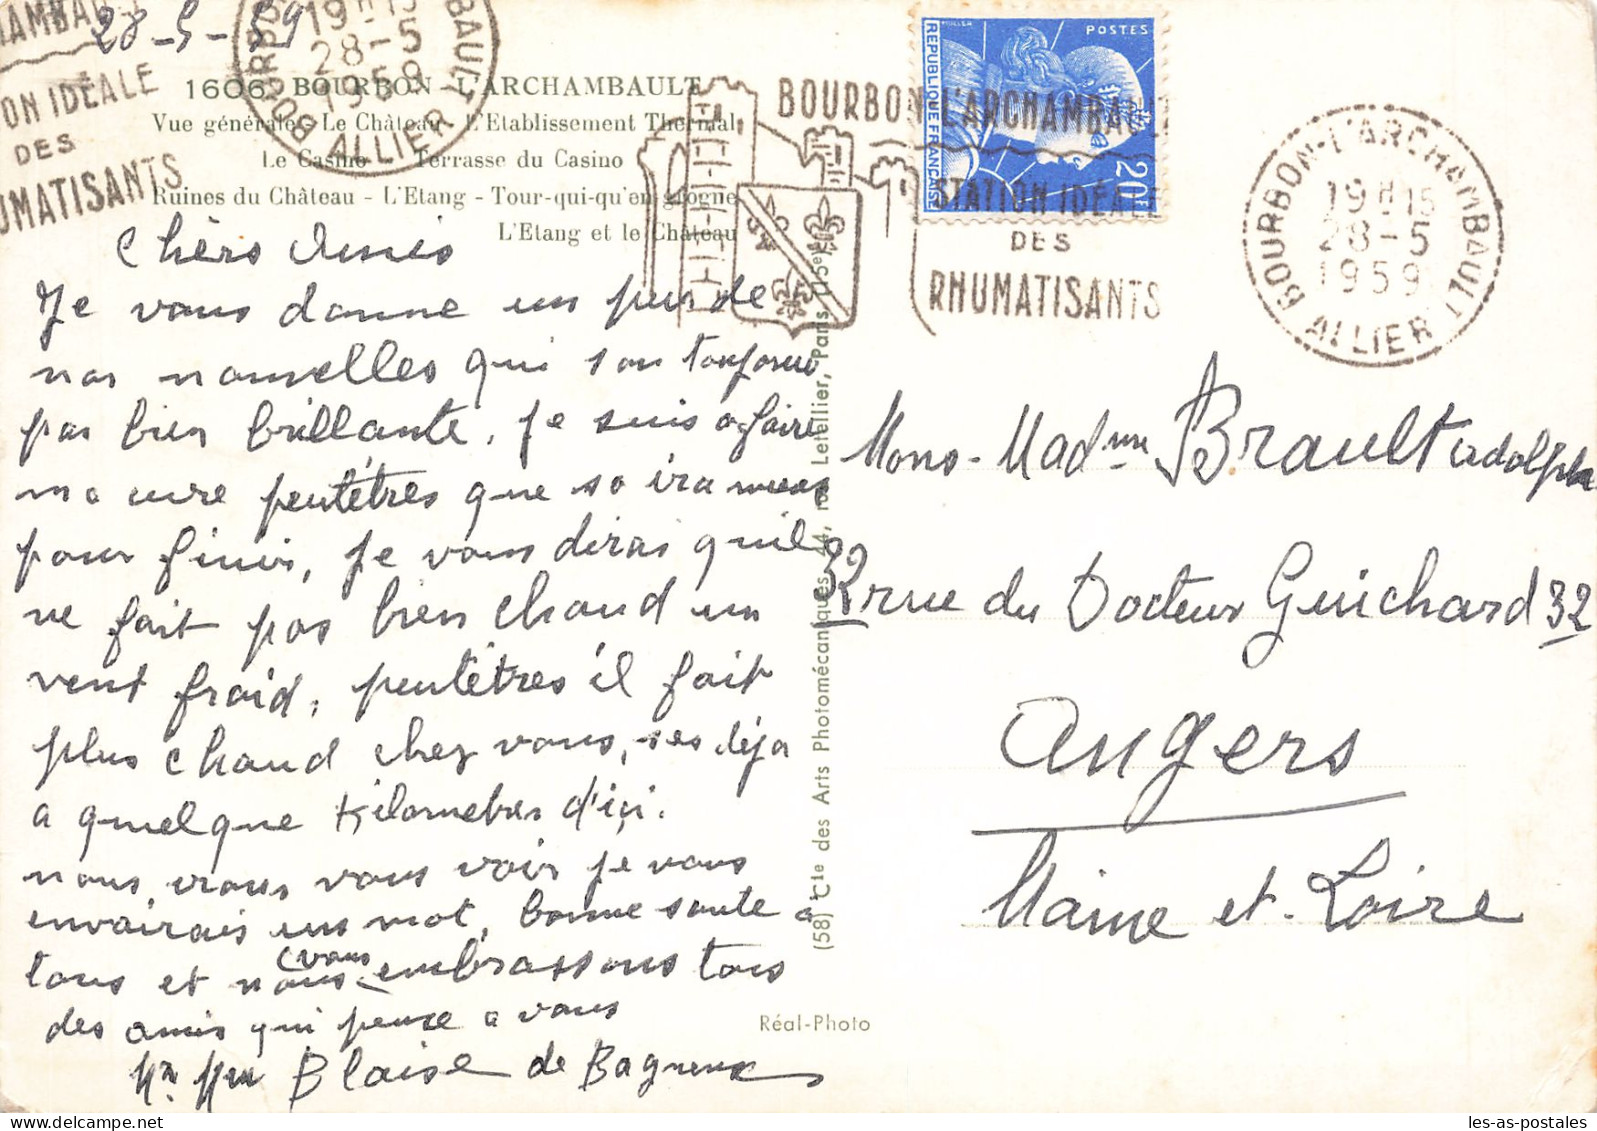 28-5-59
1606 BOURBON-L'ARCHAMBAULT
Vue générale - Le Château - L'Etablissement Thermal
Le Casino - Terrasse du Casino
Ruines du Château - L'Etang - Tour-qui-qu'en-grogne
L'Etang et le Château
Chèrs Amis
Je vous donne un peu de
nos nouvelles qui son toujours
pas bien brillante, je suis a faire
ma cure peutêtres que sa ira mieux
pour finir, je vous diras quil
ne fait pas bien chaud un
vent froid, peutêtres il fait
plus chaud chez vous, ses déja
a quelque Kilometres d'içi.
nous irons vous voir je vous
envairais un mot, bonne sante a
tous et nous vous embrassons tous
des amis qui pense a vous
Mr Mme Blaise de Bagneux
BOURBON-L'ARCHAMBAULT
ALLIER
19 H 15
28-5
1959
BOURBON L'ARCHAMBAULT
STATION IDÉALE
DES
RHUMATISANTS
AMBAU
ON IDÉALE
DES
UMATISANTS
MULLER
POSTES
REPUBLIQUE FRANÇAISE
20F
BOURBON-L'ARCHAMBAULT
ALLIER
19 H 15
28-5
1959
Mons-Madme Brault Adolphe
32 rue du Docteur Guichard 32
Angers
Maine et-Loire
(58) Cie des Arts Photomécaniques, 44, rue Letellier, Paris (15e)
Réal-Photo
les-as-postales